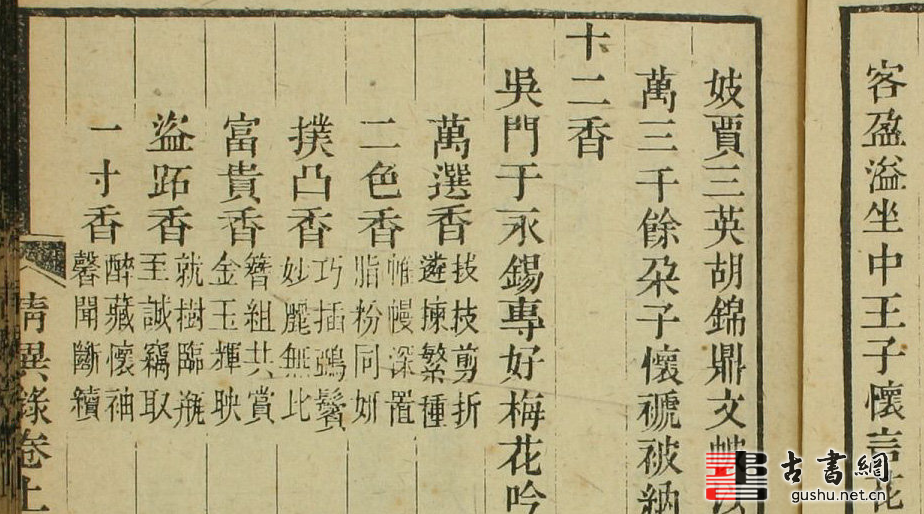 客盈溢坐中王子懷言花
妓賈三英胡錦鼎文帔
萬三千餘朶子懷褫被納
十二香
吳門于永錫專好梅花吟
萬選香
拔枝剪折
遴揀繁種
二色香
帷幔深置
脂粉同妍
撲凸香
巧插鴉鬢
妙麗無比
富貴香
簪組共賞
金玉輝映
盜跖香
就樹臨瓶
至誠竊取
一寸香
醉藏懷袖
馨聞斷續
清異錄卷上
古書網
gushu.net.cn